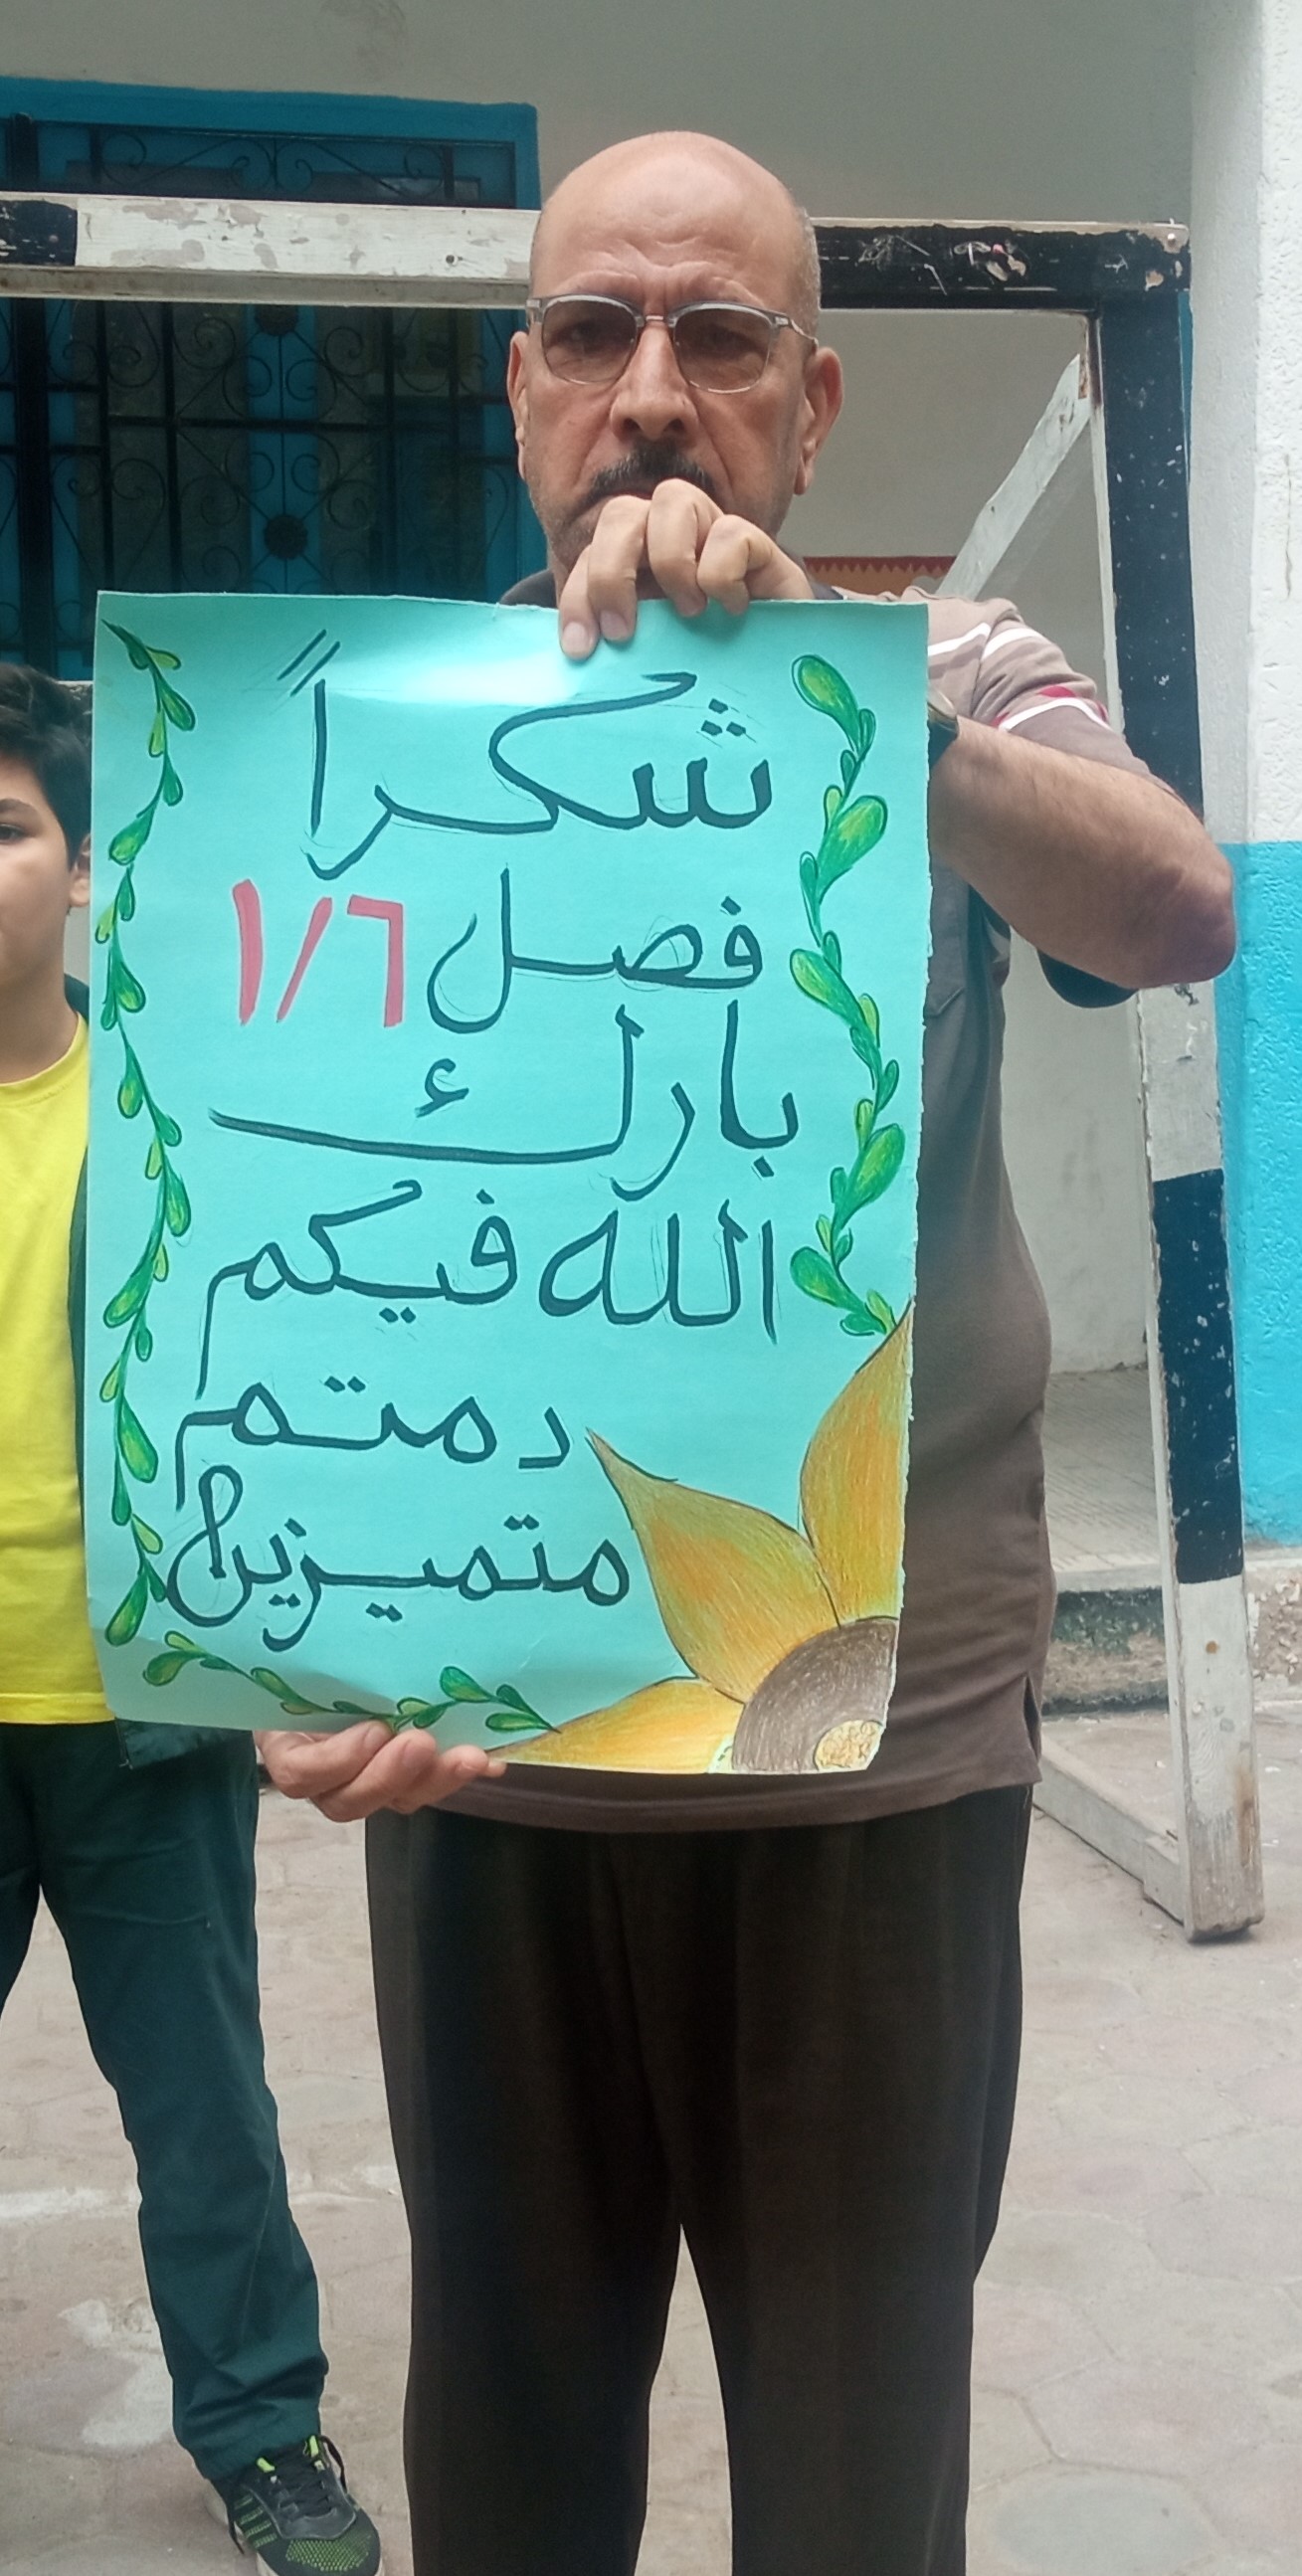 شكراً
فصل ١/٦
بارك
الله فيكم
دمتم
متميزين